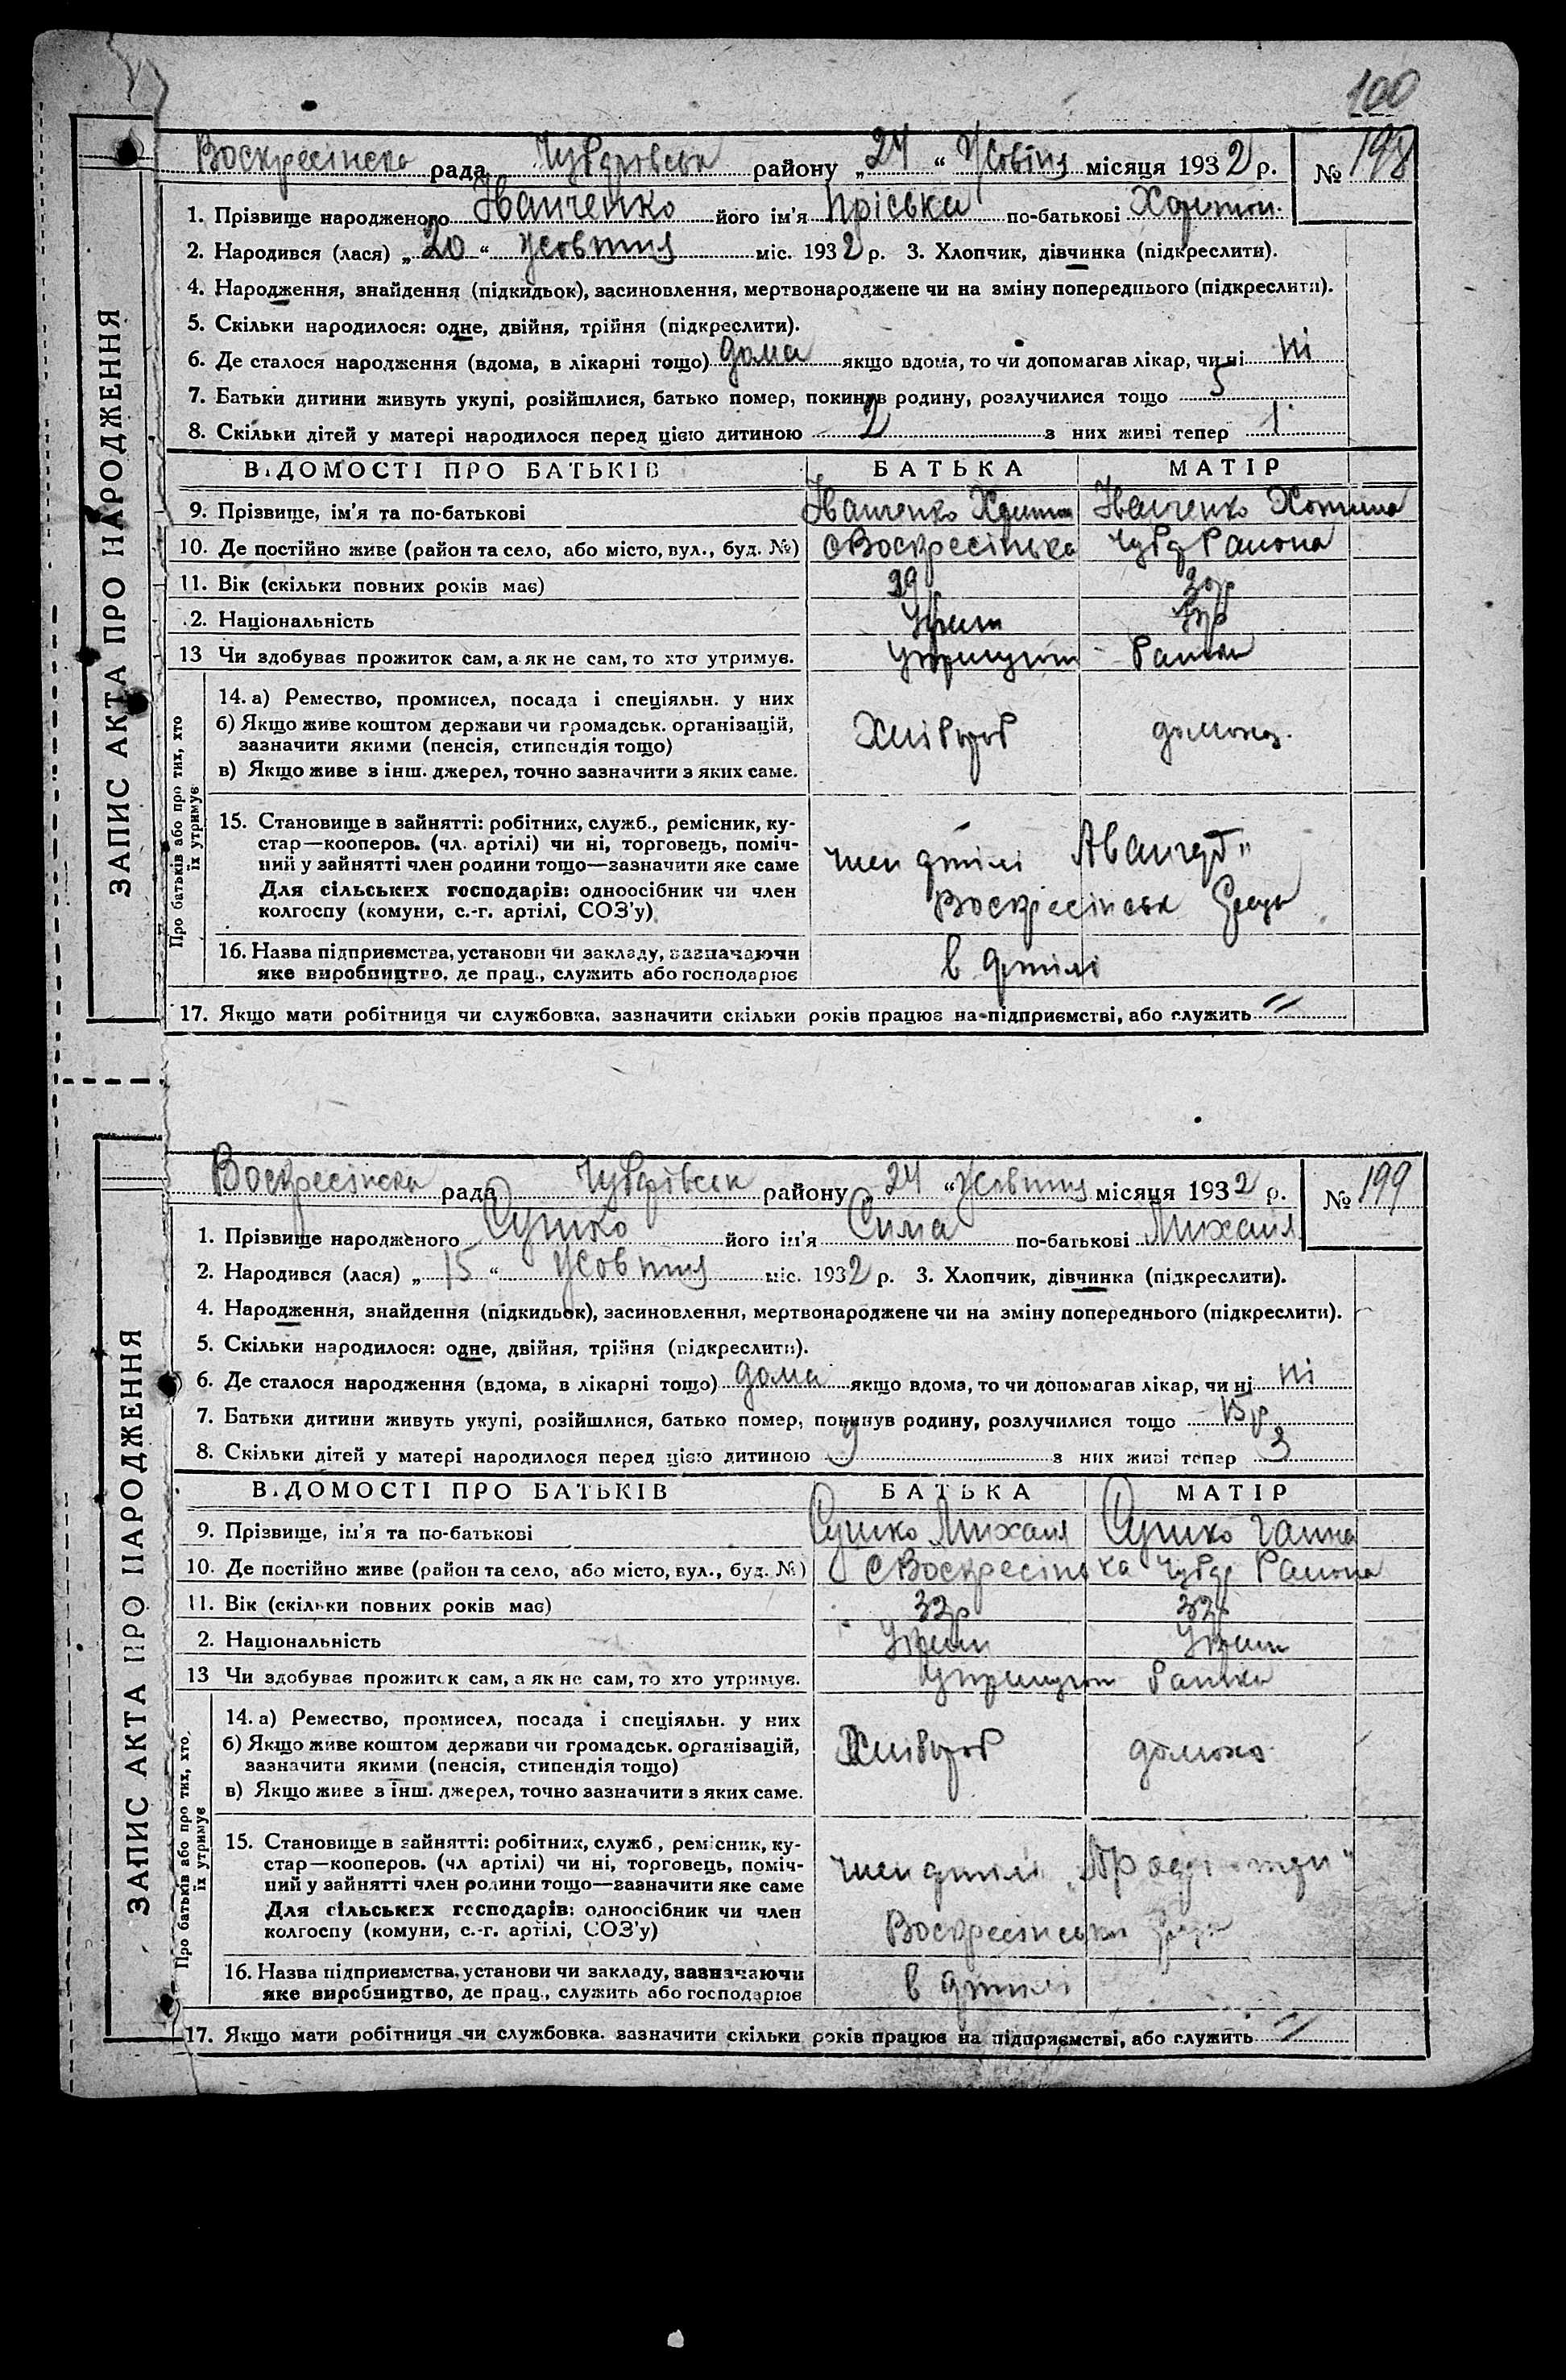 100
Воскресінска рада Чубарівська району „24“ Жовтня місяця 1932 р. № 198
1. Прізвище народженого Іванченко його ім'я Пріська по-батькові Харитон.
2. Народився (лася) „20“ Жовтня міс. 1932 р. 3. Хлопчик, дівчинка (підкреслити).
4. Народження, знайдення (підкидьок), засиновлення, мертвонароджене чи на зміну попереднього (підкреслити).
5. Скільки народилося: одне, двійня, трійня (підкреслити).
6. Де сталося народження (вдома, в лікарні тощо) дома якщо вдома, то чи допомагав лікар, чи ні ні
7. Батьки дитини живуть укупі, розійшлися, батько помер, покинув родину, розлучилися тощо 5
8. Скільки дітей у матері народилося перед цією дитиною 2 з них живі тепер 1
ВІДОМОСТІ ПРО БАТЬКІВ БАТЬКА МАТІР
9. Прізвище, ім'я та по-батькові Іванченко Харитон Іванченко
10. Де постійно живе (район та село, або місто, вул., буд. №) с Воскресінька Чубар Района
11. Вік (скільки повних років має) 29 30р
.2. Національність Украін Укр
13 Чи здобуває прожиток сам, а як не сам, то хто утримує.
14. а) Ремество, промисел, посада і спеціяльн. у них
б) Якщо живе коштом держави чи громадськ. організацій,
зазначити якими (пенсія, стипендія тощо) Хлібороб домохоз.
в) Якщо живе з інш. джерел, точно зазначити з яких саме.
15. Становище в зайнятті: робітних, служб., ремісник, ку-
стар—кооперов. (чл. артілі) чи ні, торговець, поміч-
ний у зайнятті член родини тощо—зазначити яке саме член артілі Авангард"
Для сільських господарів: одноосібник чи член
колгоспу (комуни, с.-г. артілі, СОЗ'у) Воскресінська
16. Назва підприємства, установи чи закладу, зазначаючи
яке виробництво, де прац., служить або господарює в артілі
17. Якщо мати робітниця чи службовка, зазначити скільки років працює на підприємстві, або служить //
ЗАПИС АКТА ПРО НАРОДЖЕННЯ
Про батьків або про тих, хто
їх утримує
Воскресінска рада Чубарівськ району „24“ Жовтня місяця 1932 р. № 199
1. Прізвище народженого Сушко його ім'я Сима по-батькові Михаил
2. Народився (лася) „15“ Жовтня міс. 1932 р. 3. Хлопчик, дівчинка (підкреслити).
4. Народження, знайдення (підкидьок), засиновлення, мертвонароджене чи на зміну попереднього (підкреслити).
5. Скільки народилося: одне, двійня, трійня (підкреслити).
6. Де сталося народження (вдома, в лікарні тощо) дома якщо вдома, то чи допомагав лікар, чи ні ні
7. Батьки дитини живуть укупі, розійшлися, батько помер, покинув родину, розлучилися тощо 15р
8. Скільки дітей у матері народилося перед цією дитиною з них живі тепер 3
ВІДОМОСТІ ПРО БАТЬКІВ БАТЬКА МАТІР
9. Прізвище, ім'я та по-батькові Сушко Михаил Сушко Ганна
10. Де постійно живе (район та село, або місто, вул., буд. №) с Воскресінька Чубар Района
11. Вік (скільки повних років має) 33р 32р
2. Національність Украін Украін
13 Чи здобуває прожиток сам, а як не сам, то хто утримує.
14. а) Ремество, промисел, посада і спеціяльн. у них
б) Якщо живе коштом держави чи громадськ. організацій,
зазначити якими (пенсія, стипендія тощо) Хлібороб домохоз
в) Якщо живе з інш. джерел, точно зазначити з яких саме.
15. Становище в зайнятті: робітних, служб., ремісник, ку-
стар—кооперов. (чл артілі) чи ні, торговець, поміч-
ний у зайнятті член родини тощо—зазначити яке саме член артілі
Для сільських господарів: одноосібник чи член
колгоспу (комуни, с.-г. артілі, СОЗ'у) Воскресінська
16. Назва підприємства, установи чи закладу, зазначаючи
яке виробництво, де прац., служить або господарює в артілі
17. Якщо мати робітниця чи службовка. зазначити скільки років працює на підприємстві, або служить //
ЗАПИС АКТА ПРО НАРОДЖЕННЯ
Про батьків або про тих, хто
їх утримує